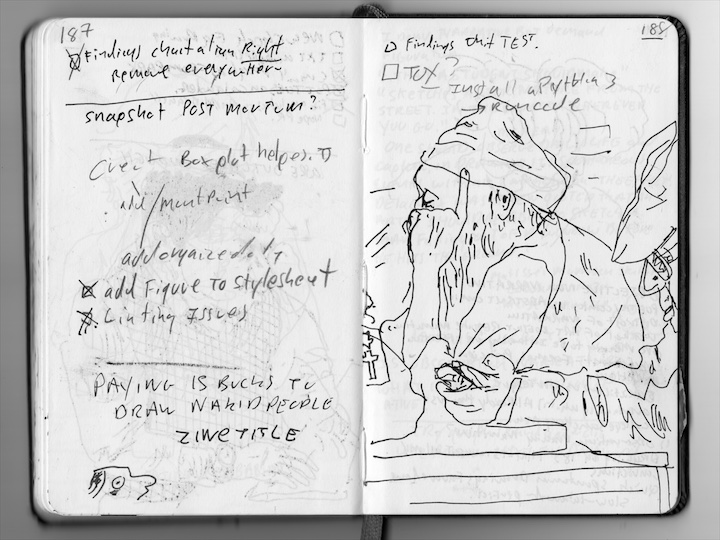 187
Findings chart align Right
remove everywhere
snapshot POST MORTUM?
Boxplot helper.ts
add/mountPoint
add organized
add Figure To stylesheet
Linting Issues
PAYING 15 BUCKS TO
DRAW NAKID PEOPLE
ZINE TITLE
188
Findings Unit TEST.
TOX?
Install a Python 3